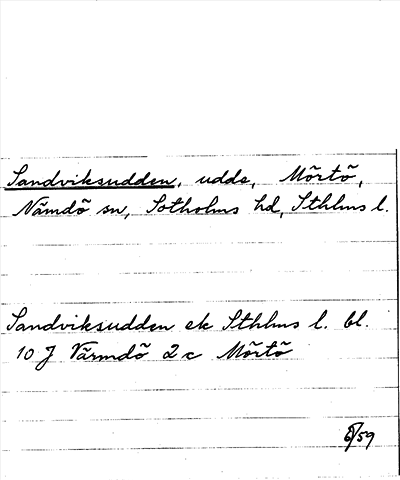 Sandviksudden, udde, Mörtö,
Nämdö sn, Sotholms hd, Sthlms l.
Sandviksudden ek Sthlms l. bl.
10 J Värmdö 2 c Mörtö
6/59